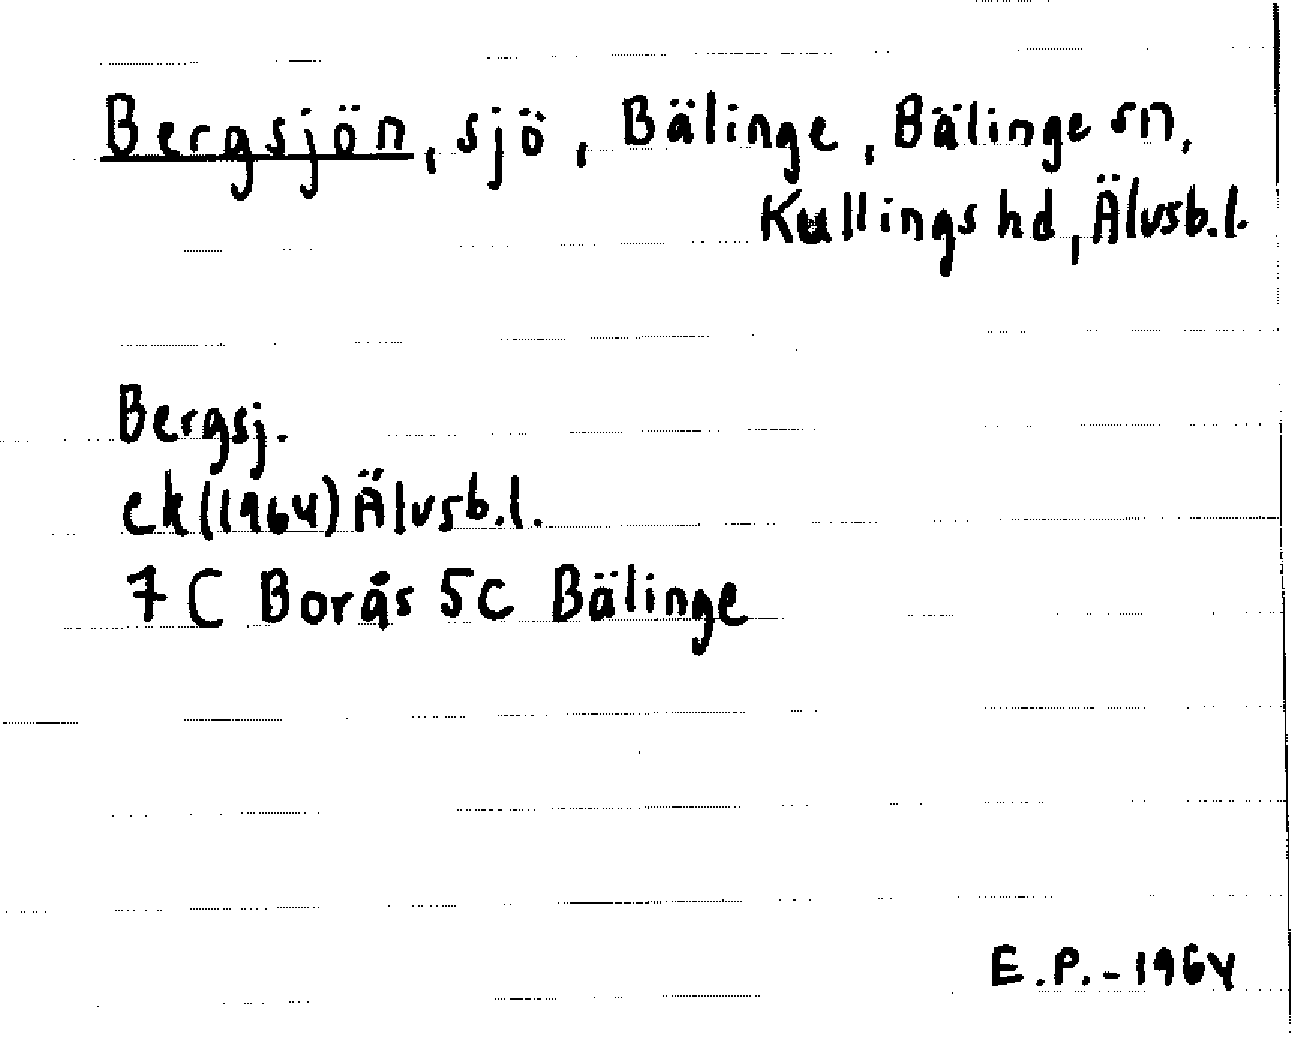 Bergsjön, sjö, Bälinge, Bälinge sn,
Kullings hd, Älvsb.l.
Bergsj.
ek (1964) Älvsb.l.
7 C Borås 5c Bälinge
E.P.-1964